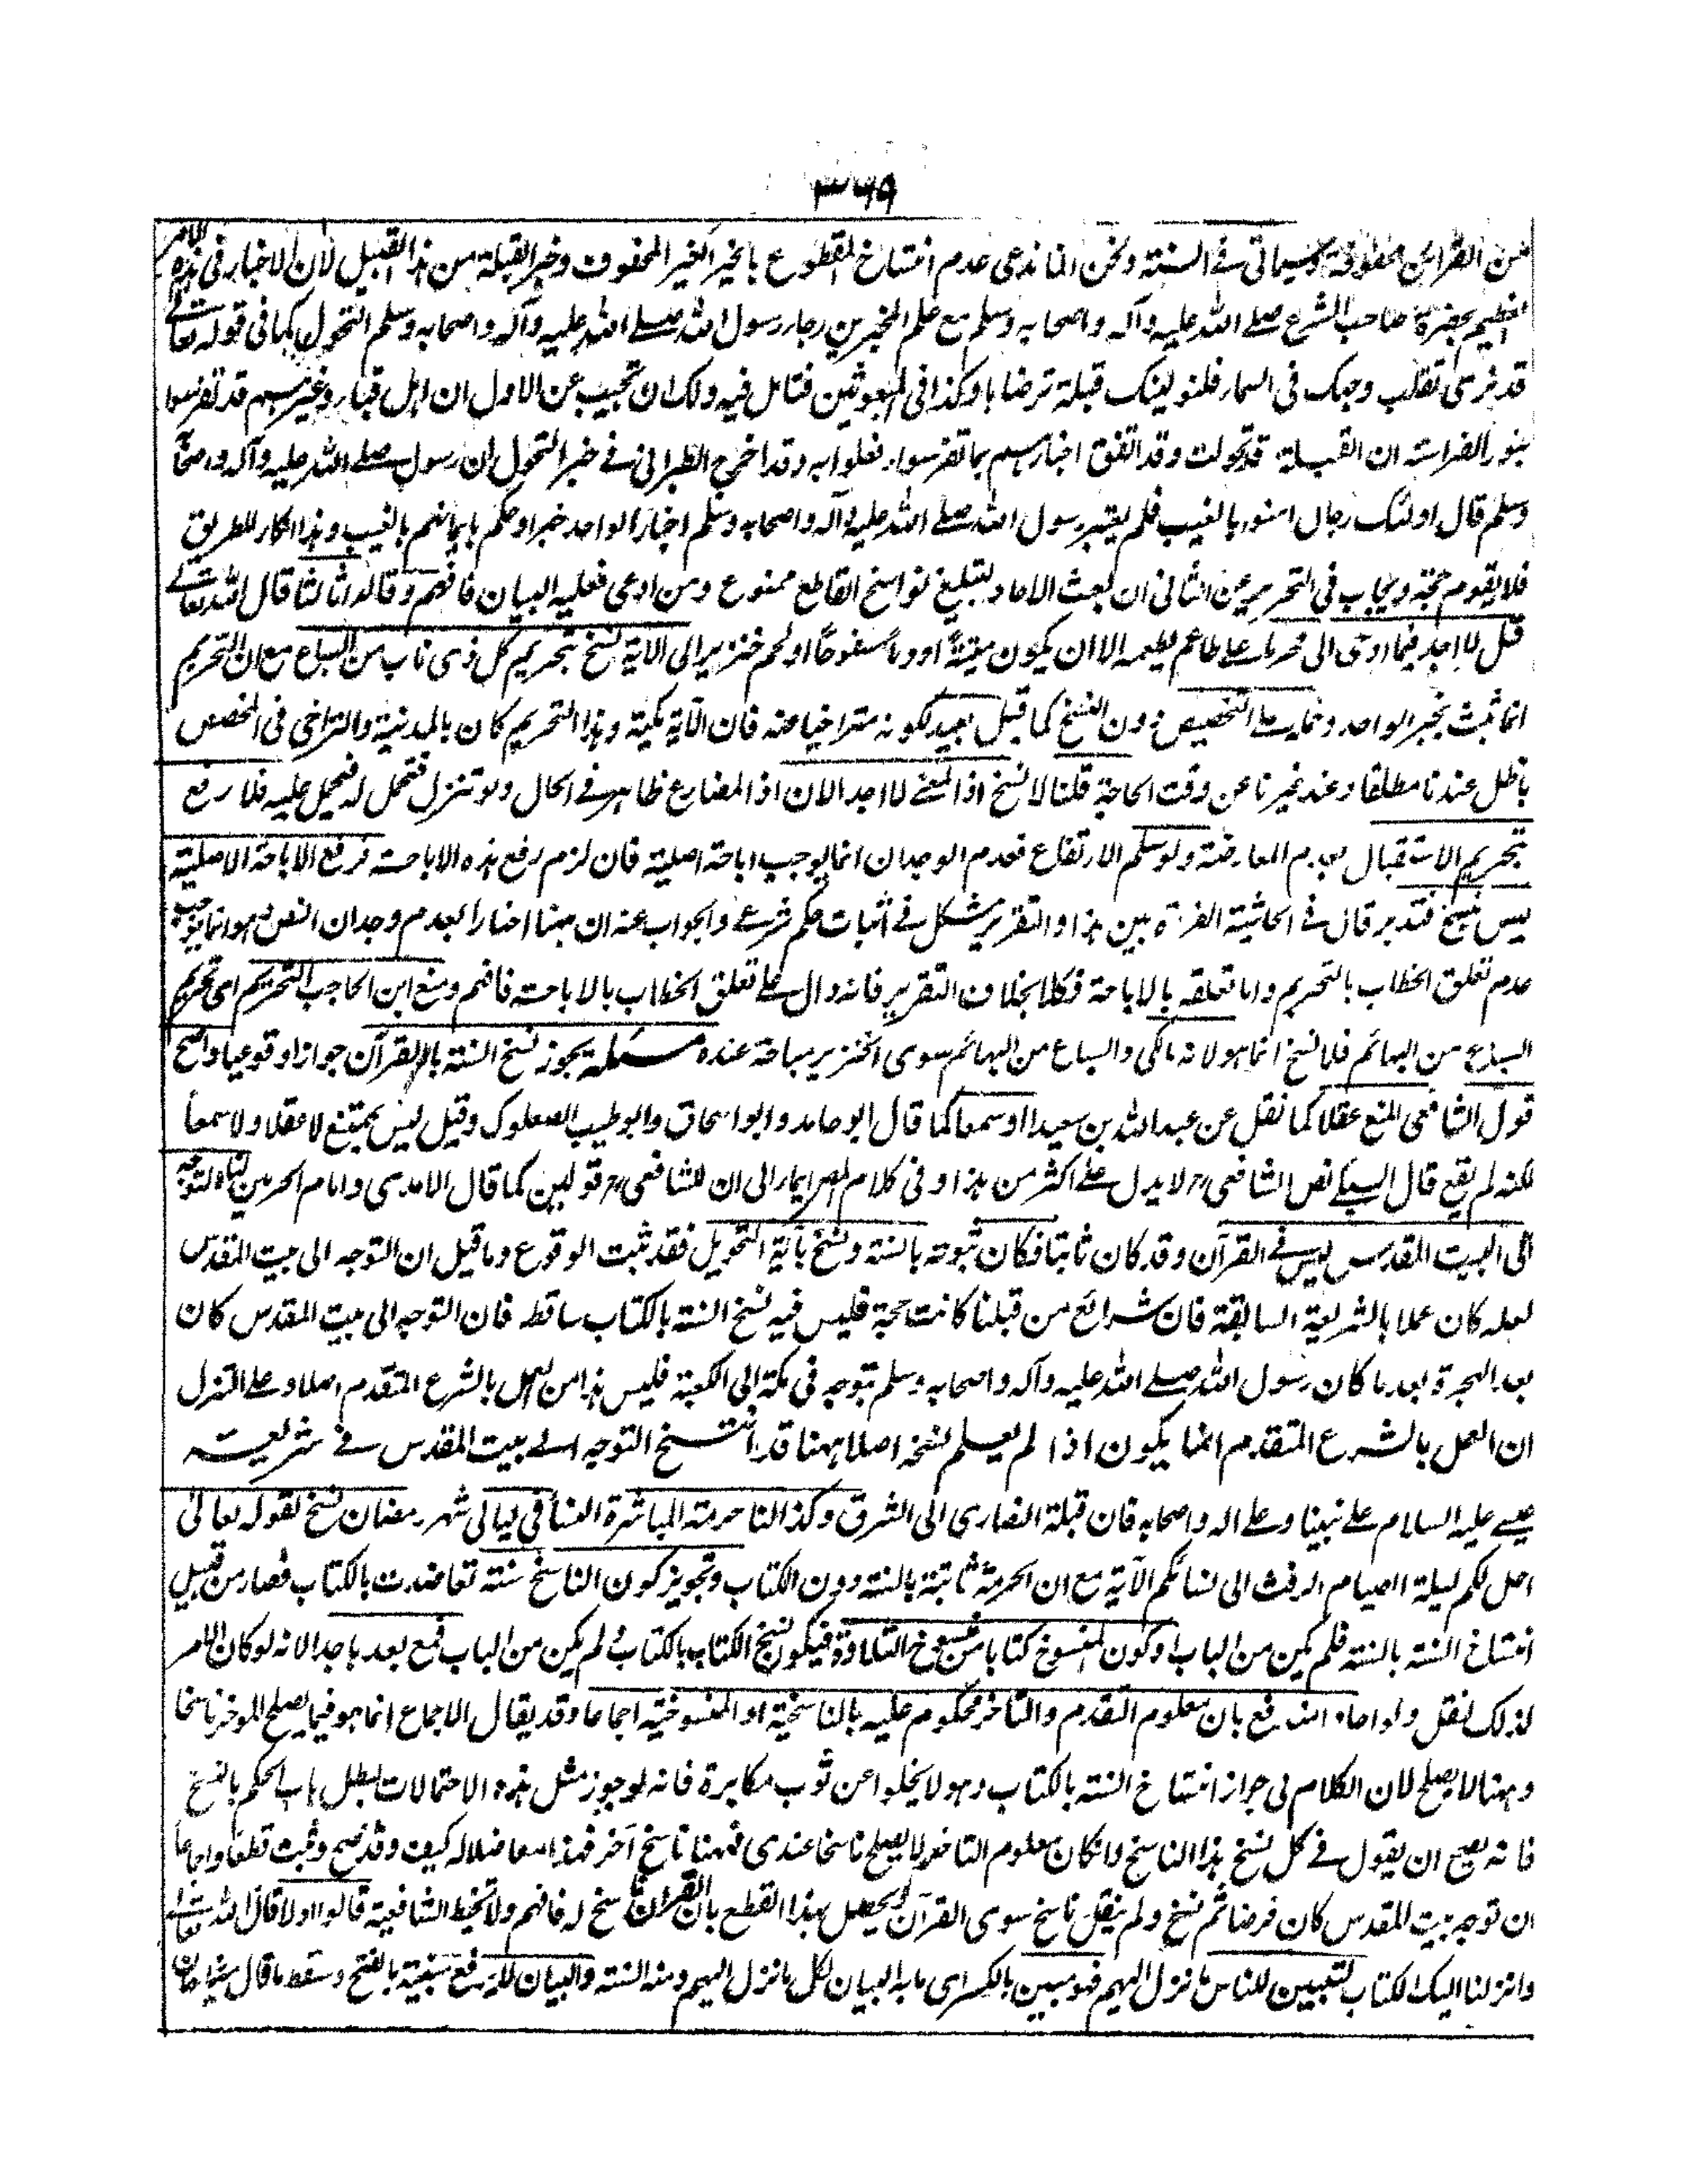 ٣٦٩
من القرائن محفوفة وسيأتي في السنة ونحن انما ندعي عدم انتساخ المقطوع بالخبر الغير المحفوف وخبر القبلة من هذا القبيل لان الاخبار في هذه الامر
العظيم بحضرة صاحب الشرع صلے الله عليه وآله واصحابه وسلم مع علم المخبرين رجاء رسول الله صلے الله عليه وآله واصحابه وسلم التحول كما في قوله تعالے
قد نرى تقلب وجهك في السماء فلنولينك قبلة ترضاها وكذا في المبعوثين فتامل فيه ولك ان تجيب عن الاول ان اهل قباء وغيرهم قد تفرسوا
بنور الفراسة ان القبلة قد تحولت وقد اتفق اخبارهم بما تفرسوا، فعلموا به وقد اخرج الطبراني في خبر التحول ان رسول صلے الله عليه وآله واصحابه
وسلم قال اولئك رجال امنوا بالغيب فلم يعتبر رسول الله صلے الله عليه وآله واصحابه وسلم اخبار الواحد خبرا وحكم بايمانهم بالغيب وهذا انكار للطريق
فلا يقوم حجة ويجاب في التحرير عن الثاني ان بعث الاحاد لتبليغ نواسخ القاطع ممنوع ومن ادعى فعليه البيان فافهم وقالوا ثالثا قال الله تعالے
قل لا اجد فيما اوحى الى محرما علے طاعم يطعمه الا ان يكون ميتة او دما مسفوحا او لحم خنزير الى الآية نسخ بتحريم كل ذى ناب من السباع مع ان التحريم
انما ثبت بخبر الواحد وحمله علے التخصيص دون النسخ كما قيل بعيد لكونه متراخيا عنه فان الآية مكية وهذا التحريم كان بالمدينة والتراخى في المخصص
باطل عندنا مطلقا وعند غيرنا عن وقت الحاجة قلنا لا نسخ اذ المعنے لا اجد الان اذ المضارع ظاهر في الحال ولو تنزل فتحمل له فيحمل عليه فلا رفع
بتحريم الاستقبال بعدم المعارضة ولو سلم الارتفاع فعدم الوجدان انما يوجب اباحة اصلية فان لزم رفع هذه الاباحة فرفع الاباحة الاصلية
ليس بنسخ فتدبر قال في الحاشية الفرق بين هذا والتقرير مشكل في اثبات حكم شرعے والجواب عنه ان ههنا اخبارا بعدم وجدان النص وهو انما يوجب
عدم تعلق الخطاب بالتحريم واما تعلقه بالاباحة فكلا بخلاف التقرير فانه دال علے تعلق الخطاب بالاباحة فافهم ومنع ابن الحاجب التحريم اى تحريم
السباع من البهائم فلا نسخ انما هو لانه مالكى والسباع من البهائم سوى الخنزير مباحة عنده مسئلة يجوز نسخ السنة بالقرآن جوازا وقوعيا واصح
قول الشافعى المنع عقلا كما نقل عن عبد الله بن سعيد او سمعا كما قال ابو حامد وابو اسحاق وابو طيب الصعلوكى وقيل ليس يمتنع لا عقلا ولا سمعا
لكنه لم يقع قال السبكے نص الشافعى لا يدل علے اكثر من هذا وفي كلام المصر ايماء الى ان للشافعى قولين كما قال الامدى وامام الحرمين لنا التوجه
الى البيت المقدس ليس في القرآن وقد كان ثابتا فكان ثبوته بالسنة ونسخ بآية التحويل فقد ثبت الوقوع وما قيل ان التوجه الى بيت المقدس
لعله كان عملا بالشريعة السابقة فان شرائع من قبلنا كانت حجة فليس فيه نسخ السنة بالكتاب ساقط فان التوجه الى بيت المقدس كان
بعد الهجرة وبعد ما كان رسول الله صلے الله عليه وآله واصحابه وسلم يتوجه في مكة الى الكعبة فليس هذا من العمل بالشرع المتقدم اصلا وعلے التنزل
ان العمل بالشرع المتقدم انما يكون اذا لم يعلم نسخه اصلا وههنا قد انتسخ التوجه الے بيت المقدس في شريعت
عيسے عليه السلام علے نبينا وعلے اله واصحابه فان قبلة النصارى الى الشرق وكذا لنا حرمة المباشرة النساء في ليالى شهر رمضان نسخ لقوله تعالى
احل لكم ليلة الصيام الرفث الى نسائكم الآية مع ان الحرمة ثابتة بالسنة دون الكتاب وتجويز كون الناسخ سنة تعاضدت بالكتاب فصار من قبيل
انتساخ السنة بالسنة فلم يكن من الباب او كون المنسوخ كتابا منسوخ التلاوة فيكون نسخ الكتاب بالكتاب فلم يكن من الباب فمع بعده جدا لانه لو كان الامر
لذلك لنقل ولو احادا اندفع بان معلوم التقدم والتاخر محكوم عليه بالناسخية او المنسوخية اجماعا وقد يقال الاجماع انما هو فيما يصلح المؤخر ناسخا
وههنا لا يصلح لان الكلام في جواز انتساخ السنة بالكتاب وهو لا يخلو عن ثوب مكابرة فانه لو جوز مثل هذه الاحتمالات لبطل باب الحكم بالنسخ
فانه يصح ان يقول في كل نسخ هذا الناسخ وان كان معلوم التاخر لا يصلح ناسخا عندى فههنا ناسخ آخر فهذا كيف وقد صح وثبت قطعا واجماعا
ان توجه بيت المقدس كان فرضا ثم نسخ ولم ينقل ناسخ سوى القرآن ليحصل بهذا القطع بان القرآن ناسخ له فافهم ولا تخبط الشافعية قالوا اولا قال الله تعالے
وانزلنا اليك الكتاب لتبيين للناس ما نزل اليهم فهو مبين بالكسر اى ما به البيان لكل ما نزل اليهم ومنه السنة والبيان للرفع مبينية بالفتح وسقط ما قال شيئا كان